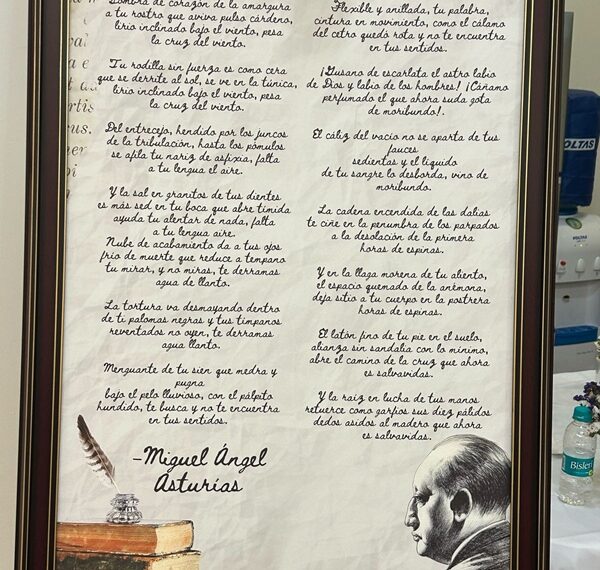 Sombra de corazón de la amargura
a tu rostro que aviva pulso cárdeno,
lirio inclinado bajo el viento, pesa
la cruz del viento.
Tu rodilla sin fuerza es como cera
que se derrite al sol, se ve en la túnica,
lirio inclinado bajo el viento, pesa
la cruz del viento.
Del entrecejo, hendido por los juncos
de la tribulación, hasta los pómulos
se afila tu nariz de asfixia, falta
a tu lengua el aire.
Y la sal en granitos de tus dientes
es más sed en tu boca que abre tímida
ayuda tu alentar de nada, falta
a tu lengua aire.
Nube de acabamiento da a tus ojos
frío de muerte que reduce a témpano
tu mirar, y no miras, te derramas
agua de llanto.
La tortura va desmayando dentro
de ti palomas negras y tus tímpanos
reventados no oyen, te derramas
agua llanto.
Menguante de tu sien que medra y
pugna
bajo el pelo lluvioso, con el pálpito
hundido, te busca y no te encuentra
en tus sentidos.
-Miguel Ángel
Asturias
Flexible y anillada, tu palabra,
cintura en movimiento, como el cálamo
del cetro quedó rota y no te encuentra
en tus sentidos.
¡Gusano de escarlata el astro labio
de Dios y labio de los hombres! ¡Cáñamo
perfumado el que ahora suda gota
de moribundo!.
El cáliz del vacío no se aparta de tus
fauces
sedientas y el líquido
de tu sangre lo desborda, vino de
moribundo.
La cadena encendida de las dalias
te ciñe en la penumbra de los párpados
a la desolación de la primera
horas de espinas.
Y en la llaga morena de tu aliento,
el espacio quemado de la anémona,
deja sitio a tu cuerpo en la postrera
horas de espinas.
El latón fino de tu pie en el suelo,
alianza sin sandalia con lo mínimo,
abre el camino de la cruz que ahora
es salvavidas.
Y la raíz en lucha de tus manos
retuerce como garfios sus diez pálidos
dedos asidos al madero que ahora
es salvavidas.
VOLTAS
Bisleri